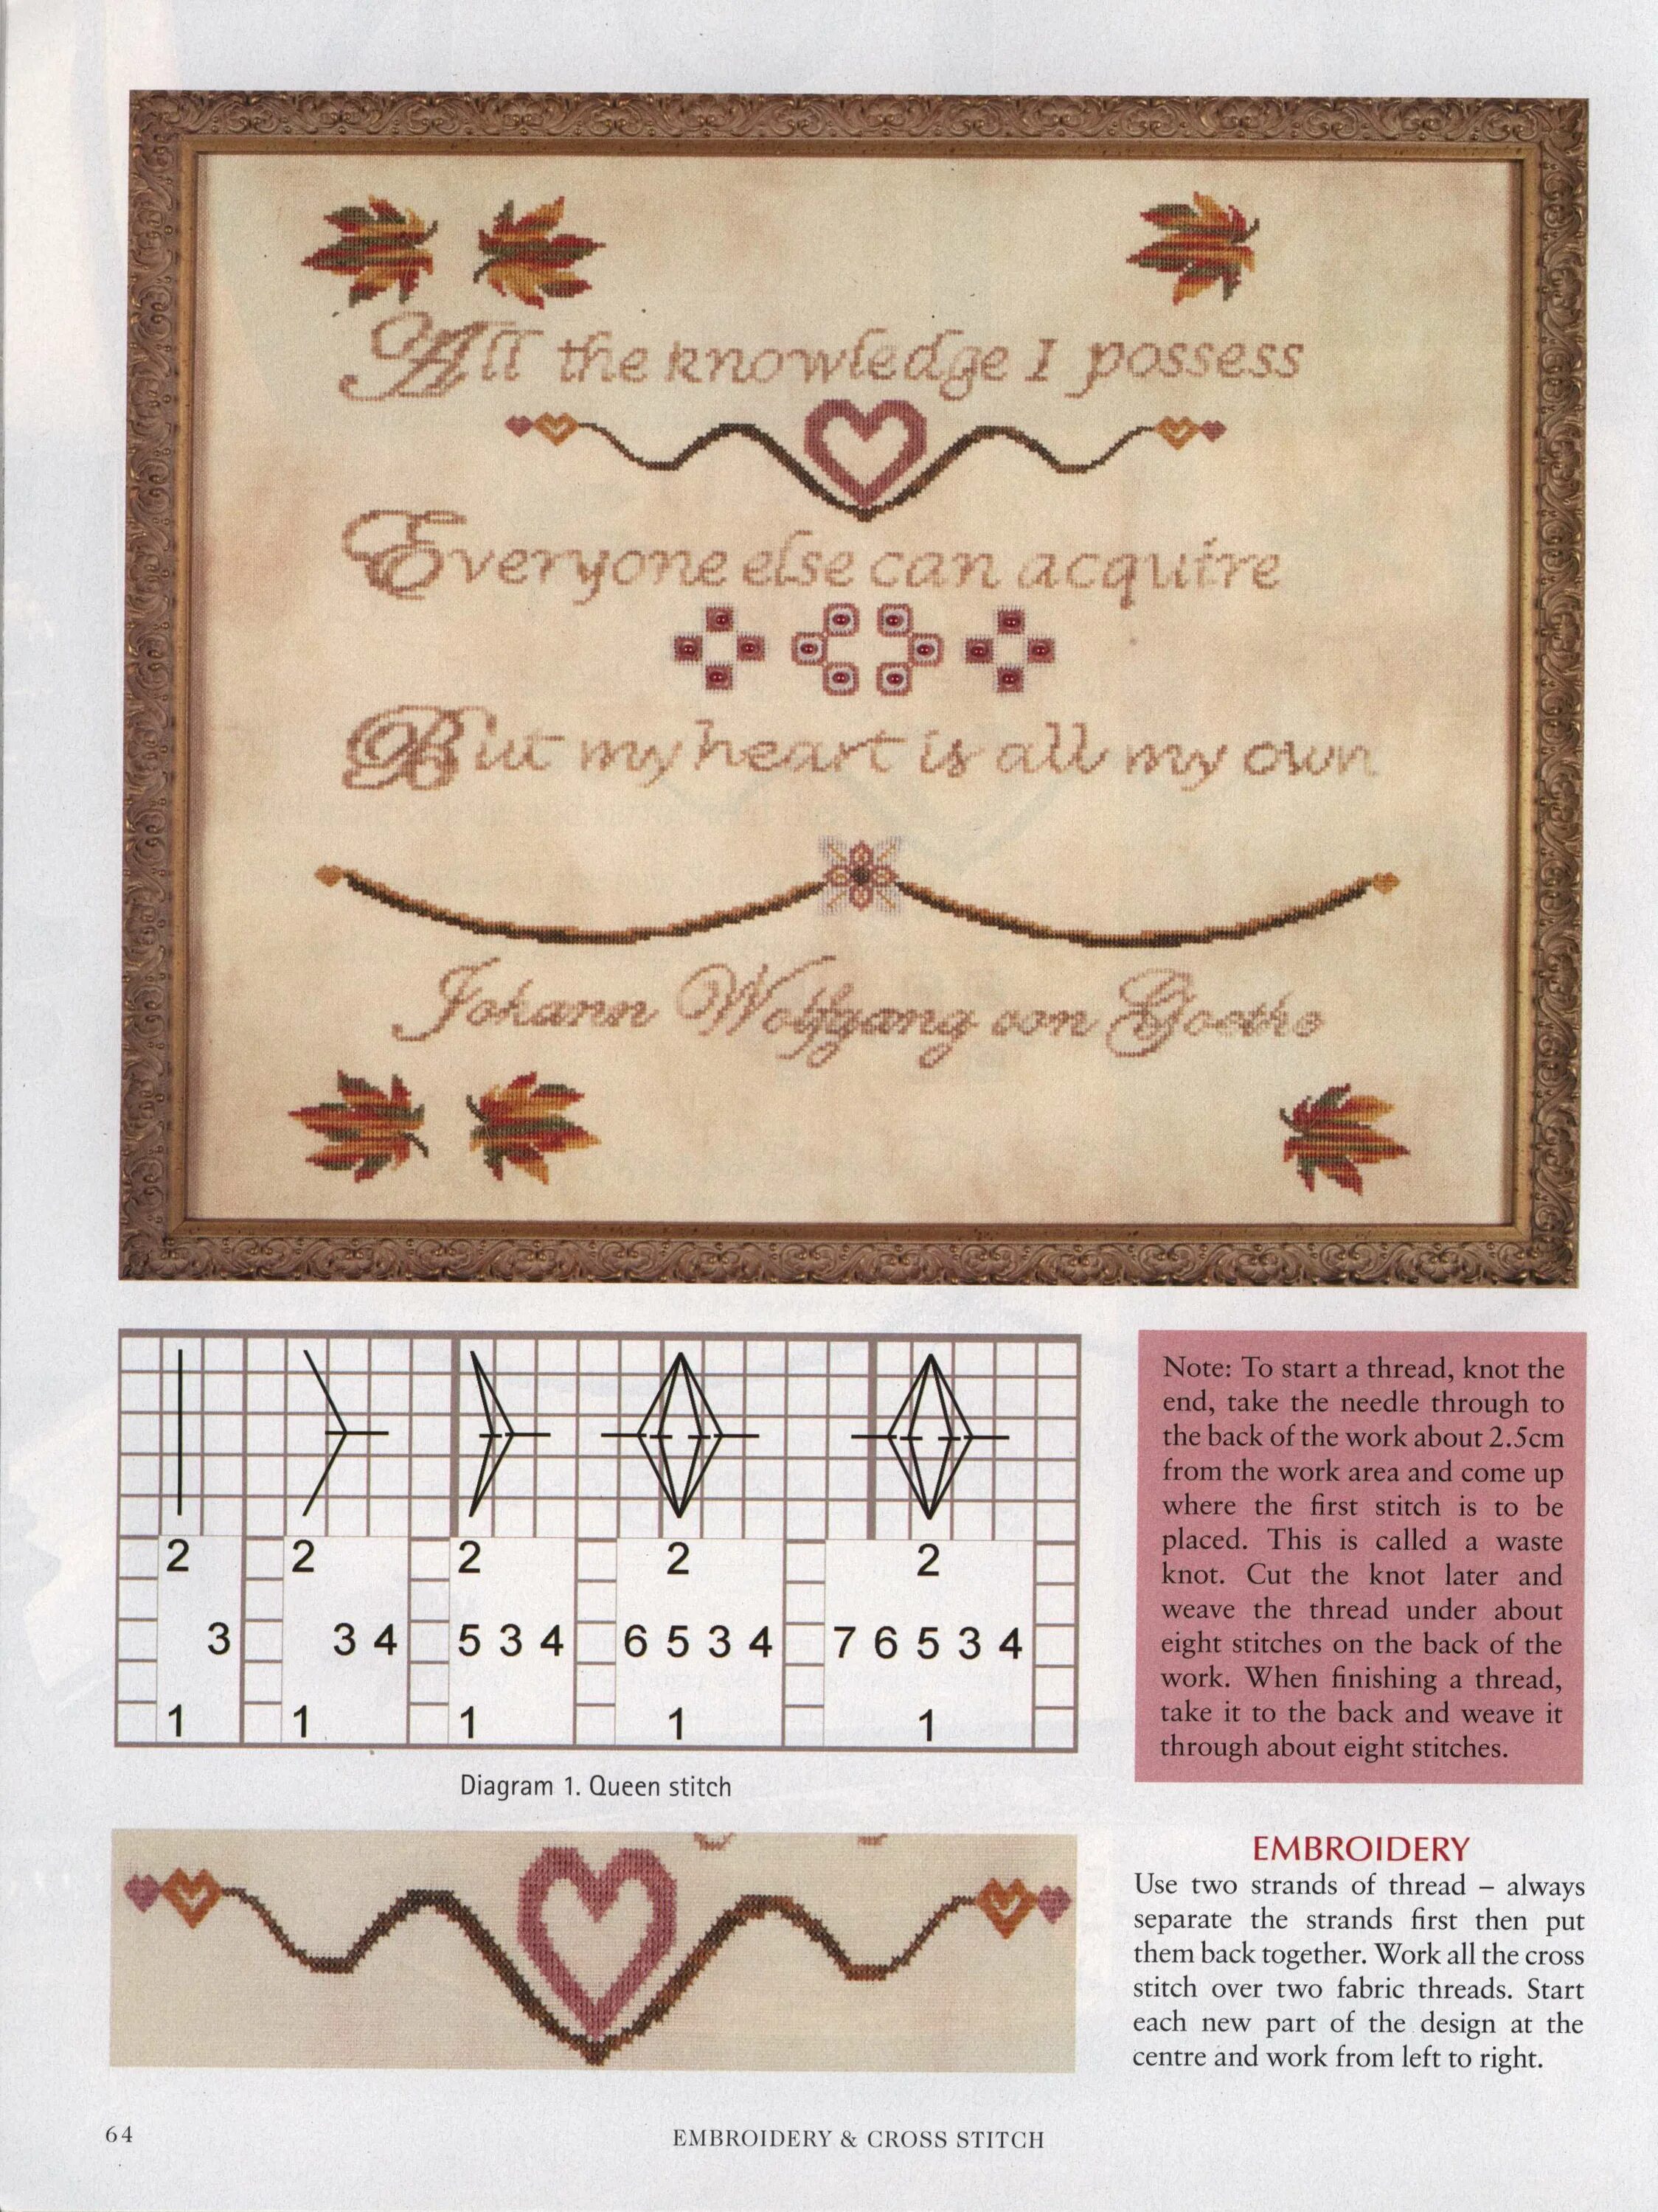 All the knowledge I possess
Everyone else can acquire
But my heart is all my own
Johann Wolfgang von Goethe
2 2 2 2 2
3 3 4 5 3 4 6 5 3 4 7 6 5 3 4
1 1 1 1 1
Diagram 1. Queen stitch
Note: To start a thread, knot the
end, take the needle through to
the back of the work about 2.5cm
from the work area and come up
where the first stitch is to be
placed. This is called a waste
knot. Cut the knot later and
weave the thread under about
eight stitches on the back of the
work. When finishing a thread,
take it to the back and weave it
through about eight stitches.
EMBROIDERY
Use two strands of thread – always
separate the strands first then put
them back together. Work all the cross
stitch over two fabric threads. Start
each new part of the design at the
centre and work from left to right.
64
EMBROIDERY & CROSS STITCH